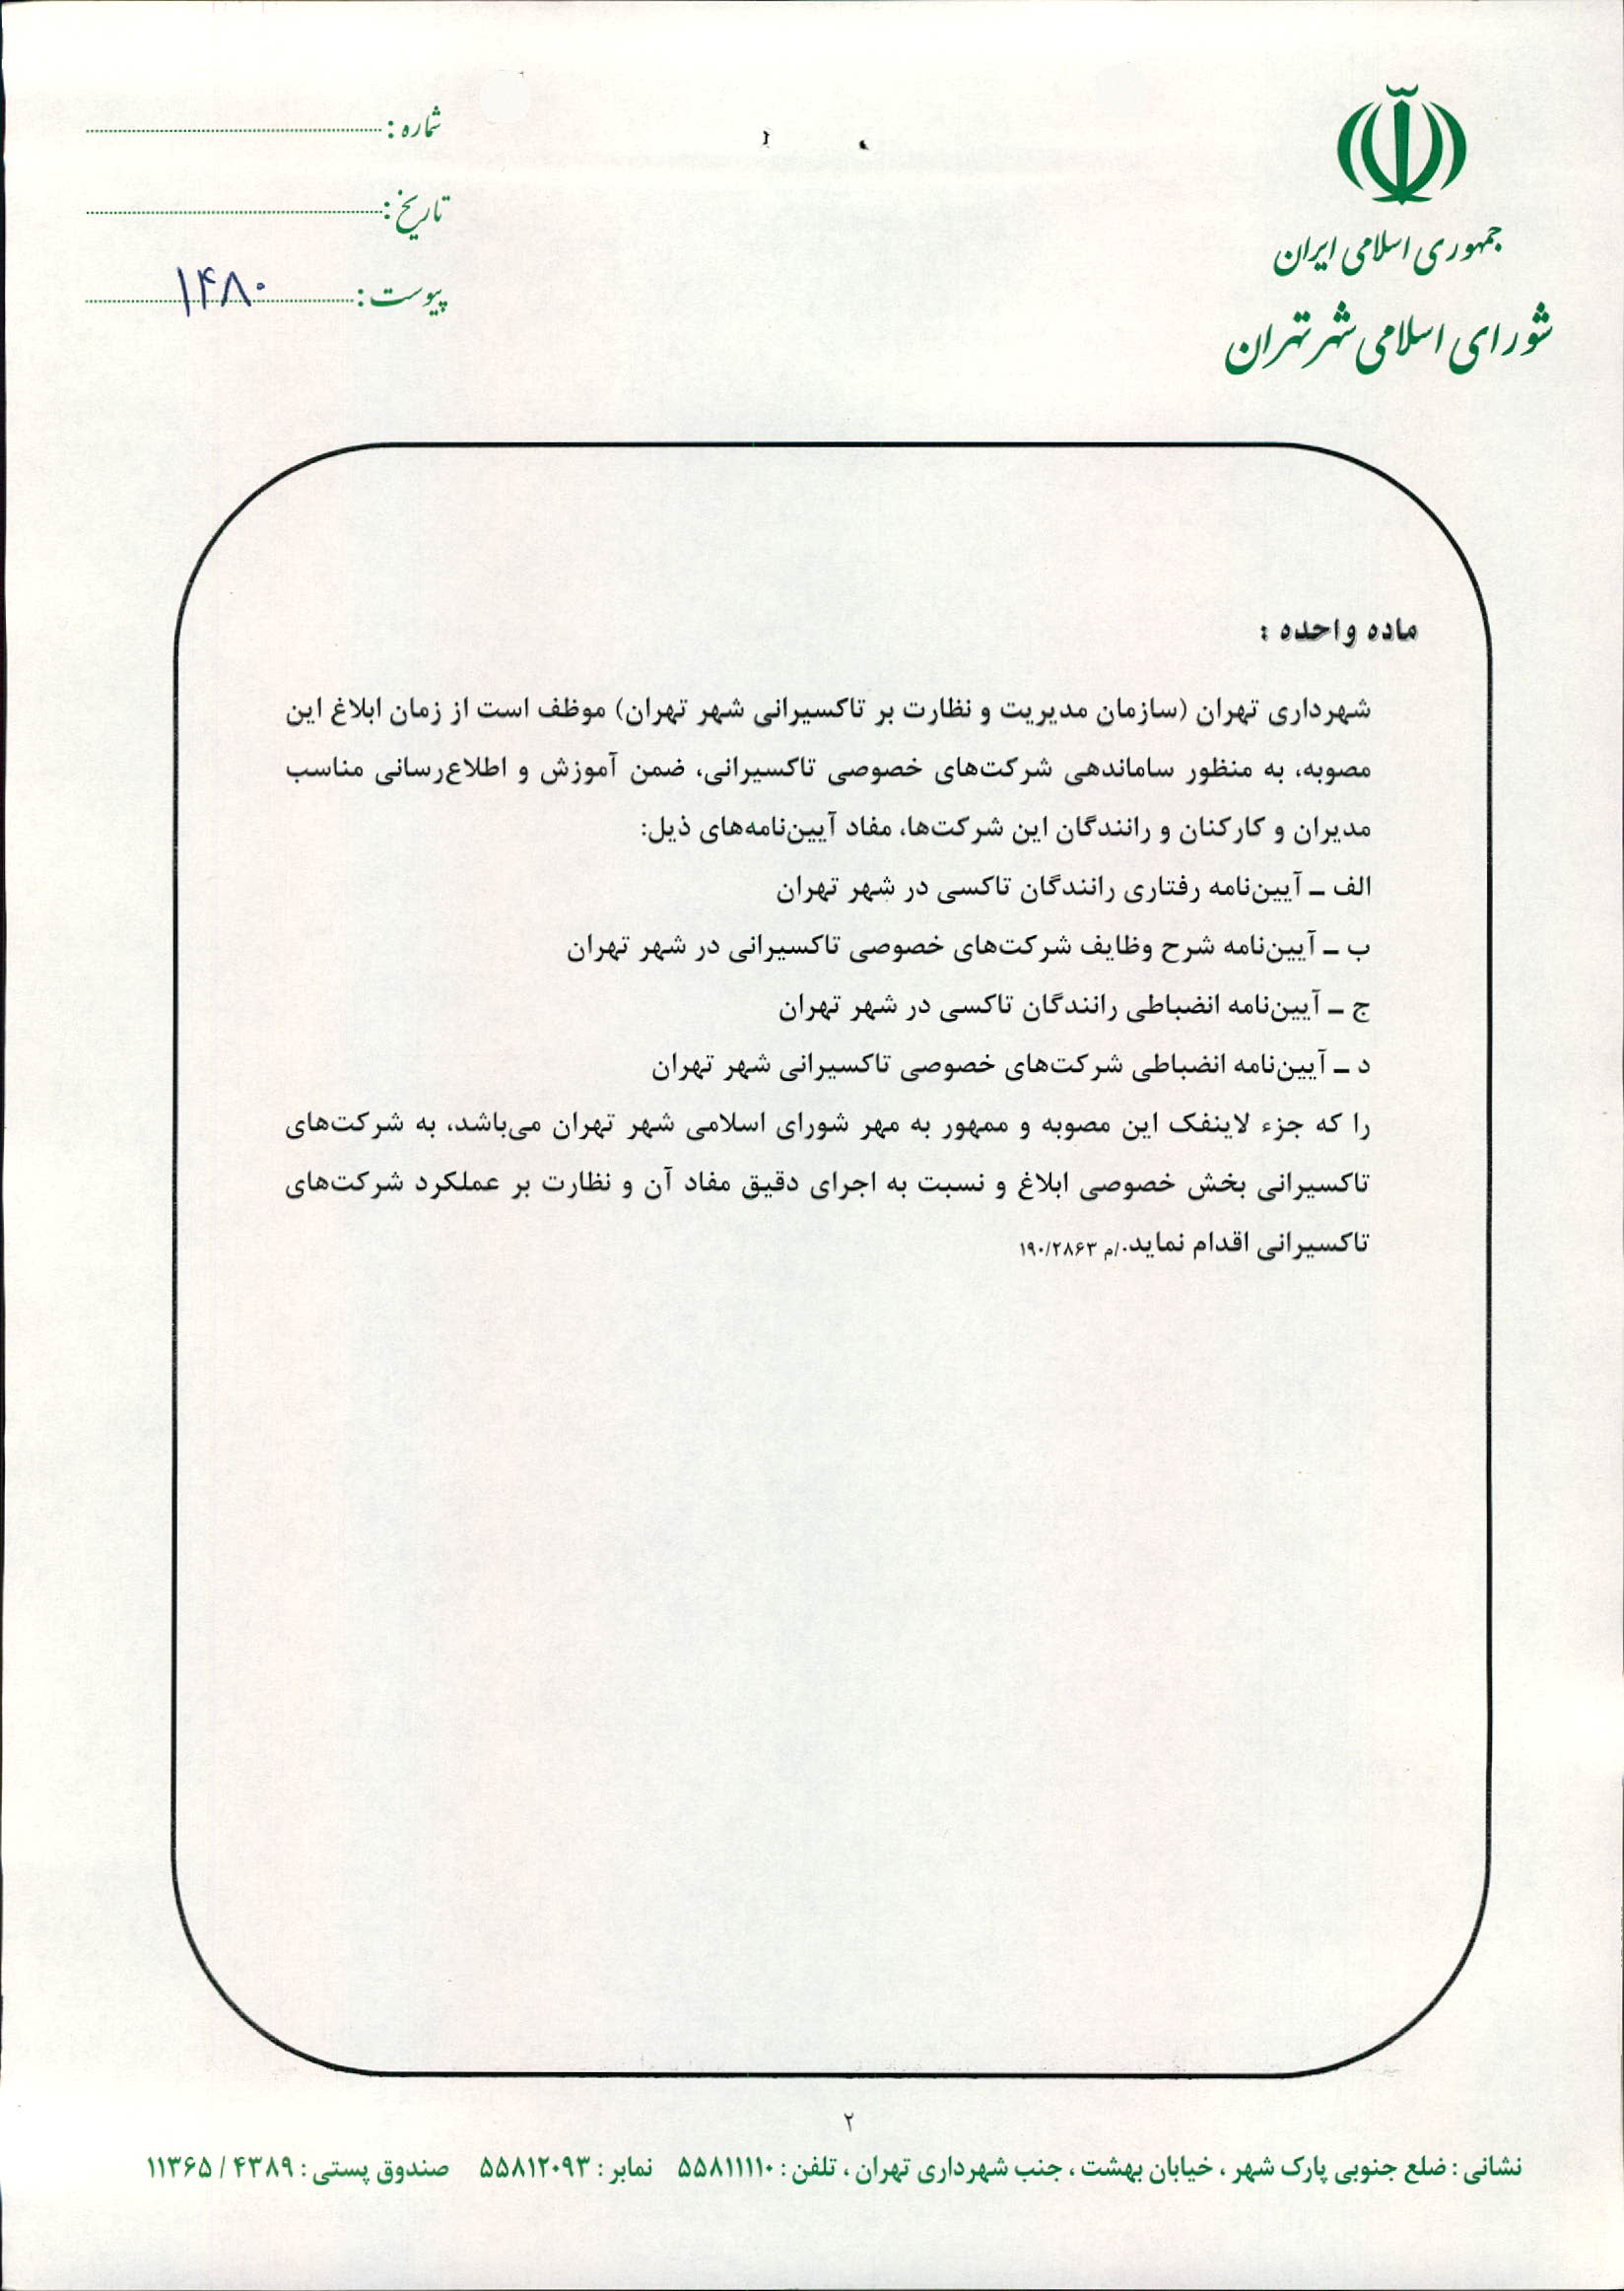 جمهوری اسلامی ایران
شورای اسلامی شهر تهران
شماره :
تاریخ :
پیوست : ۱۴۸۰
ماده واحده :
شهرداری تهران (سازمان مدیریت و نظارت بر تاکسیرانی شهر تهران) موظف است از زمان ابلاغ این
مصوبه، به منظور ساماندهی شرکت‌های خصوصی تاکسیرانی، ضمن آموزش و اطلاع‌رسانی مناسب
مدیران و کارکنان و رانندگان این شرکت‌ها، مفاد آیین‌نامه‌های ذیل:
الف ـ آیین‌نامه رفتاری رانندگان تاکسی در شهر تهران
ب ـ آیین‌نامه شرح وظایف شرکت‌های خصوصی تاکسیرانی در شهر تهران
ج ـ آیین‌نامه انضباطی رانندگان تاکسی در شهر تهران
د ـ آیین‌نامه انضباطی شرکت‌های خصوصی تاکسیرانی شهر تهران
را که جزء لاینفک این مصوبه و ممهور به مهر شورای اسلامی شهر تهران می‌باشد، به شرکت‌های
تاکسیرانی بخش خصوصی ابلاغ و نسبت به اجرای دقیق مفاد آن و نظارت بر عملکرد شرکت‌های
تاکسیرانی اقدام نماید./م ۱۹۰/۲۸۶۳
۲
نشانی : ضلع جنوبی پارک شهر ، خیابان بهشت ، جنب شهرداری تهران ، تلفن : ۵۵۸۱۱۱۱۰ نمابر : ۵۵۸۱۲۰۹۳ صندوق پستی : ۴۳۸۹ / ۱۱۳۶۵